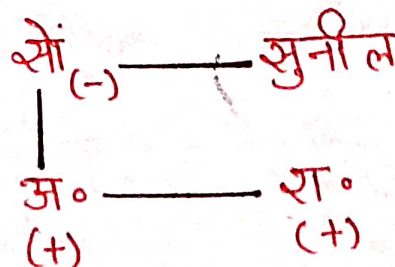 सों (-) सुनील
अ० रा०
(+) (+)